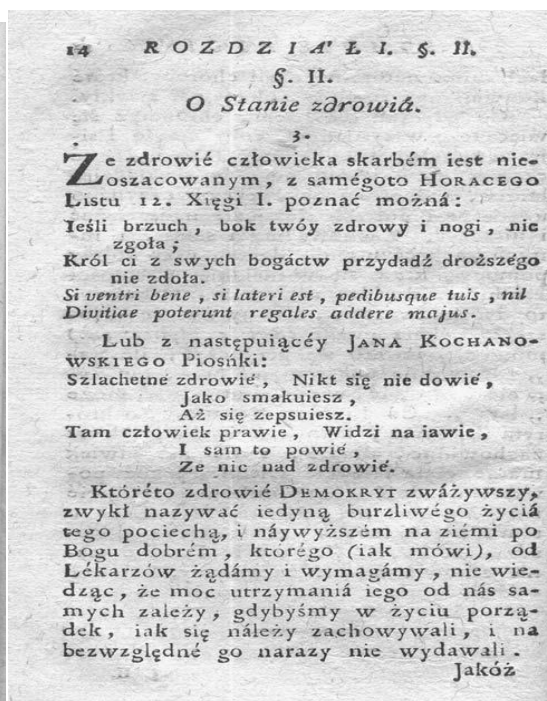 14 ROZDZIAŁ I. §. II.
§. II.
O Stanie zdrowiá.
3.
Ze zdrowié człowieka skarbém iest nie-
oszacowanym, z samégoto HORACEGO
Listu 12. Xięgi I. poznać możná:
Ieśli brzuch, bok twóy zdrowy i nogi, nic
zgoła;
Król ci z swych bogáctw przydadź droższégo
nie zdoła.
Si ventri bene, si lateri est, pedibusque tuis, nil
Divitiae poterunt regales addere majus.
Lub z następuiącéy JANA KOCHANO-
WSKIEGO Piosńki:
Szlachetné zdrowié, Nikt się nie dowié,
Jako smakuiesz,
Aż się zepsuiesz.
Tam człowiek prawie, Widzi na iawie,
I sam to powié,
Ze nic nad zdrowié.
Któréto zdrowié DEMOKRYT zwáżywszy,
zwykł nazywać iedyną burzliwégo życiá
tego pociechą, i náywyższém na ziémi po
Bogu dobrém, którégo (iak mówi), od
Lékarzów żądámy i wymagámy, nie wie-
dząc, że moc utrzymaniá iego od nás sa-
mych zależy, gdybyśmy w życiu porzą-
dek, iak się náleży zachowywali, i na
bezwzględné go narazy nie wydawali.
Jakóż